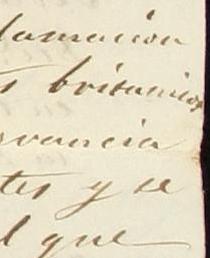 lamacion
s britanicos
rvancia
tes y se
l que